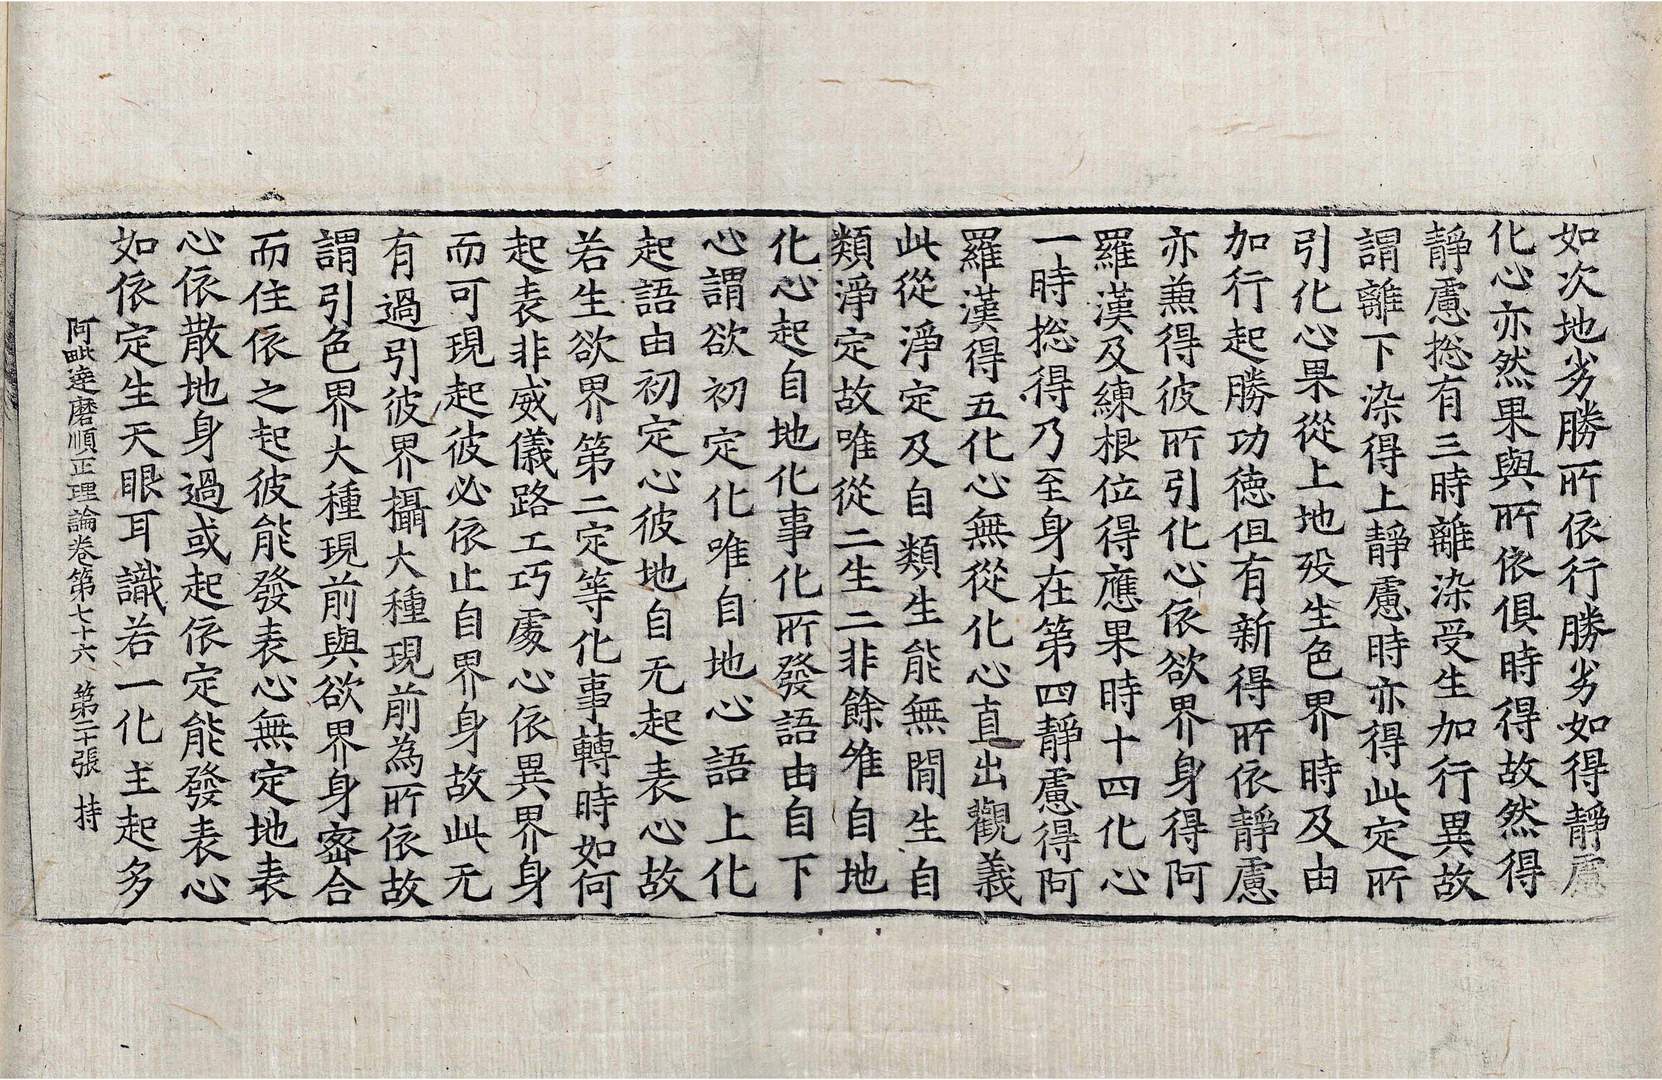 如次地劣勝所依行勝劣如得靜慮
化心亦然果與所依俱時得故然得
靜慮捴有三時離染受生加行異故
謂離下染得上靜慮時亦得此定所
引化心果從上地歿生色界時及由
加行起勝功德但有新得所依靜慮
亦兼得彼所引化心依欲界身得阿
羅漢及練根位得應果時十四化心
一時捴得乃至身在第四靜慮得阿
羅漢得五化心無從化心直出觀義
此從淨定及自類生能無間生自
類淨定故唯從二生二非餘唯自地
化心起自地化事化所發語由自下
心謂欲初定化唯自地心語上化
起語由初定心彼地自无起表心故
若生欲界第二定等化事轉時如何
起表非威儀路工巧處心依異界身
而可現起彼必依止自界身故此无
有過引彼界攝大種現前為所依故
謂引色界大種現前與欲界身密合
而住依之起彼能發表心無定地表
心依散地身過或起依定能發表心
如依定生天眼耳識若一化主起多
阿毗達磨順正理論卷第七十六 第二十張 持